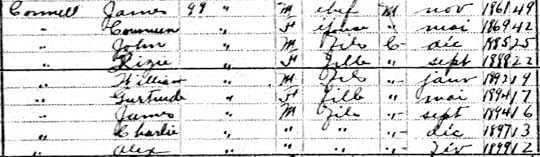 Connell James 99 " M chef M nov 1861 49
" " F épouse " mai 1869 42
" John " M fils C déc 1885 25
" Lizie " F fille " sept 1888 22
" William " M fils " janv 1892 19
" Gertrude " F fille " mai 1894 17
" James " M fils " sept 1894 16
" Charlie " " " " déc 1897 13
" Alex " " " " fév 1899 12